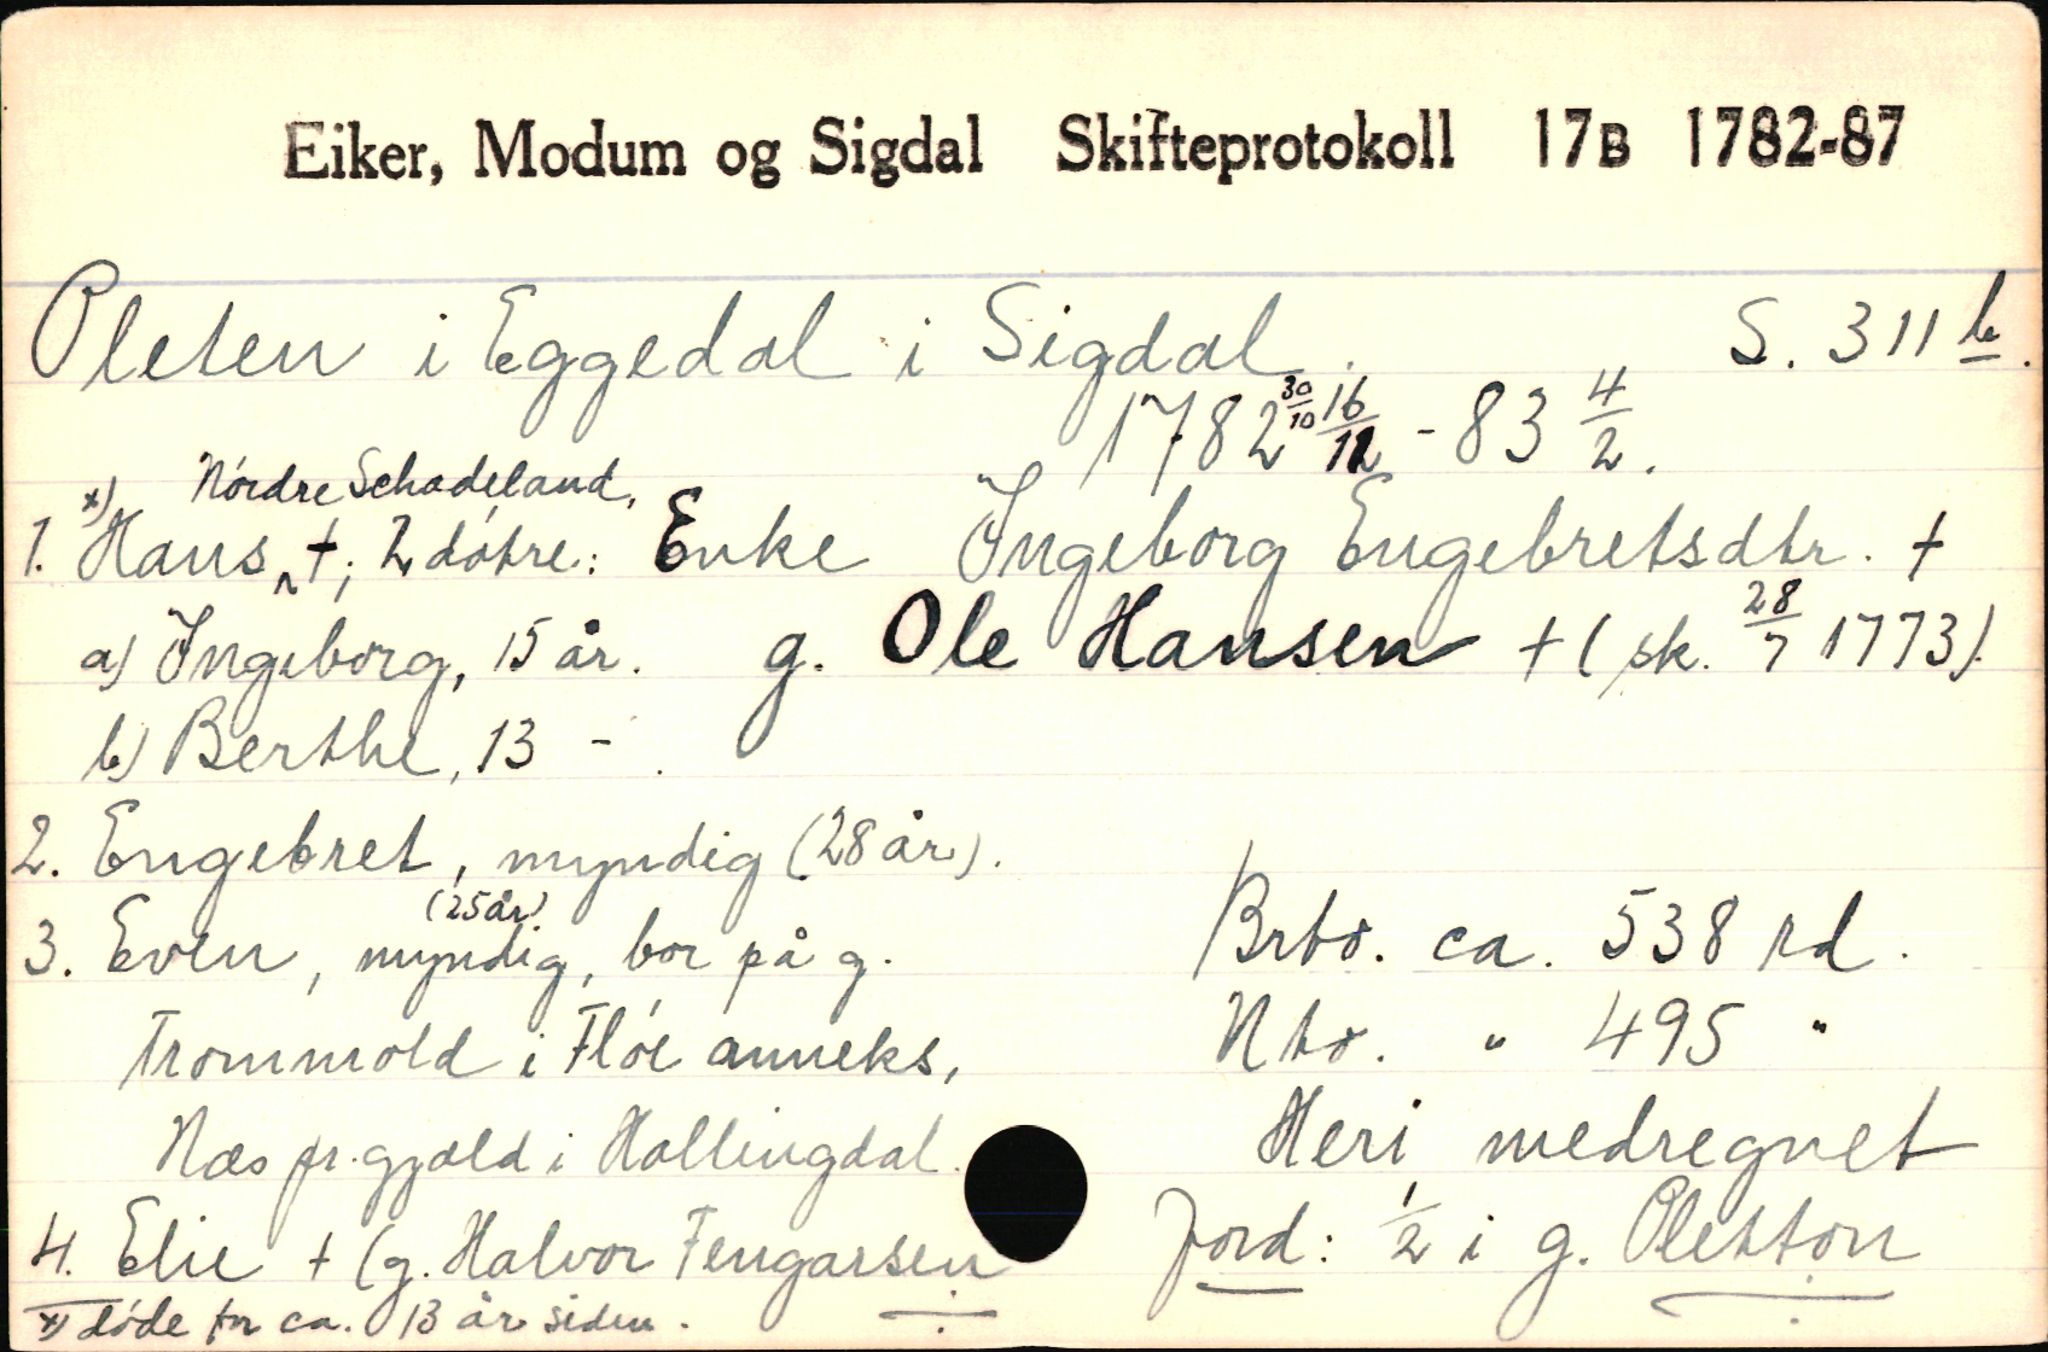 Eiker, Modum og Sigdal Skifteprotokoll 17B 1782-87
Pleten i Eggedal i Sigdal. S. 311 b.
1782 30/10 16/12 - 83 4/2.
Nórdre Schadeland,
1. x) Hans, †; 2 dótre: Enke Ingeborg Engebretsdtr. †
a) Ingeborg, 15 år. g. Ole Hansen † (sk. 28/7 1773).
b) Berthe, 13 - .
2. Engebret, myndig (28 år).
(25 år)
3. Even, myndig, bor på g. Brto. ca. 538 rd.
Trommold i Flóe anneks, Nto. " 495 "
Næs pr.gjæld i Hallingdal. Heri medregnet
4. Elie † (g. Halvor Fengarsen jord: 1/2 i g. Pletton
x) døde for ca. 13 år siden.